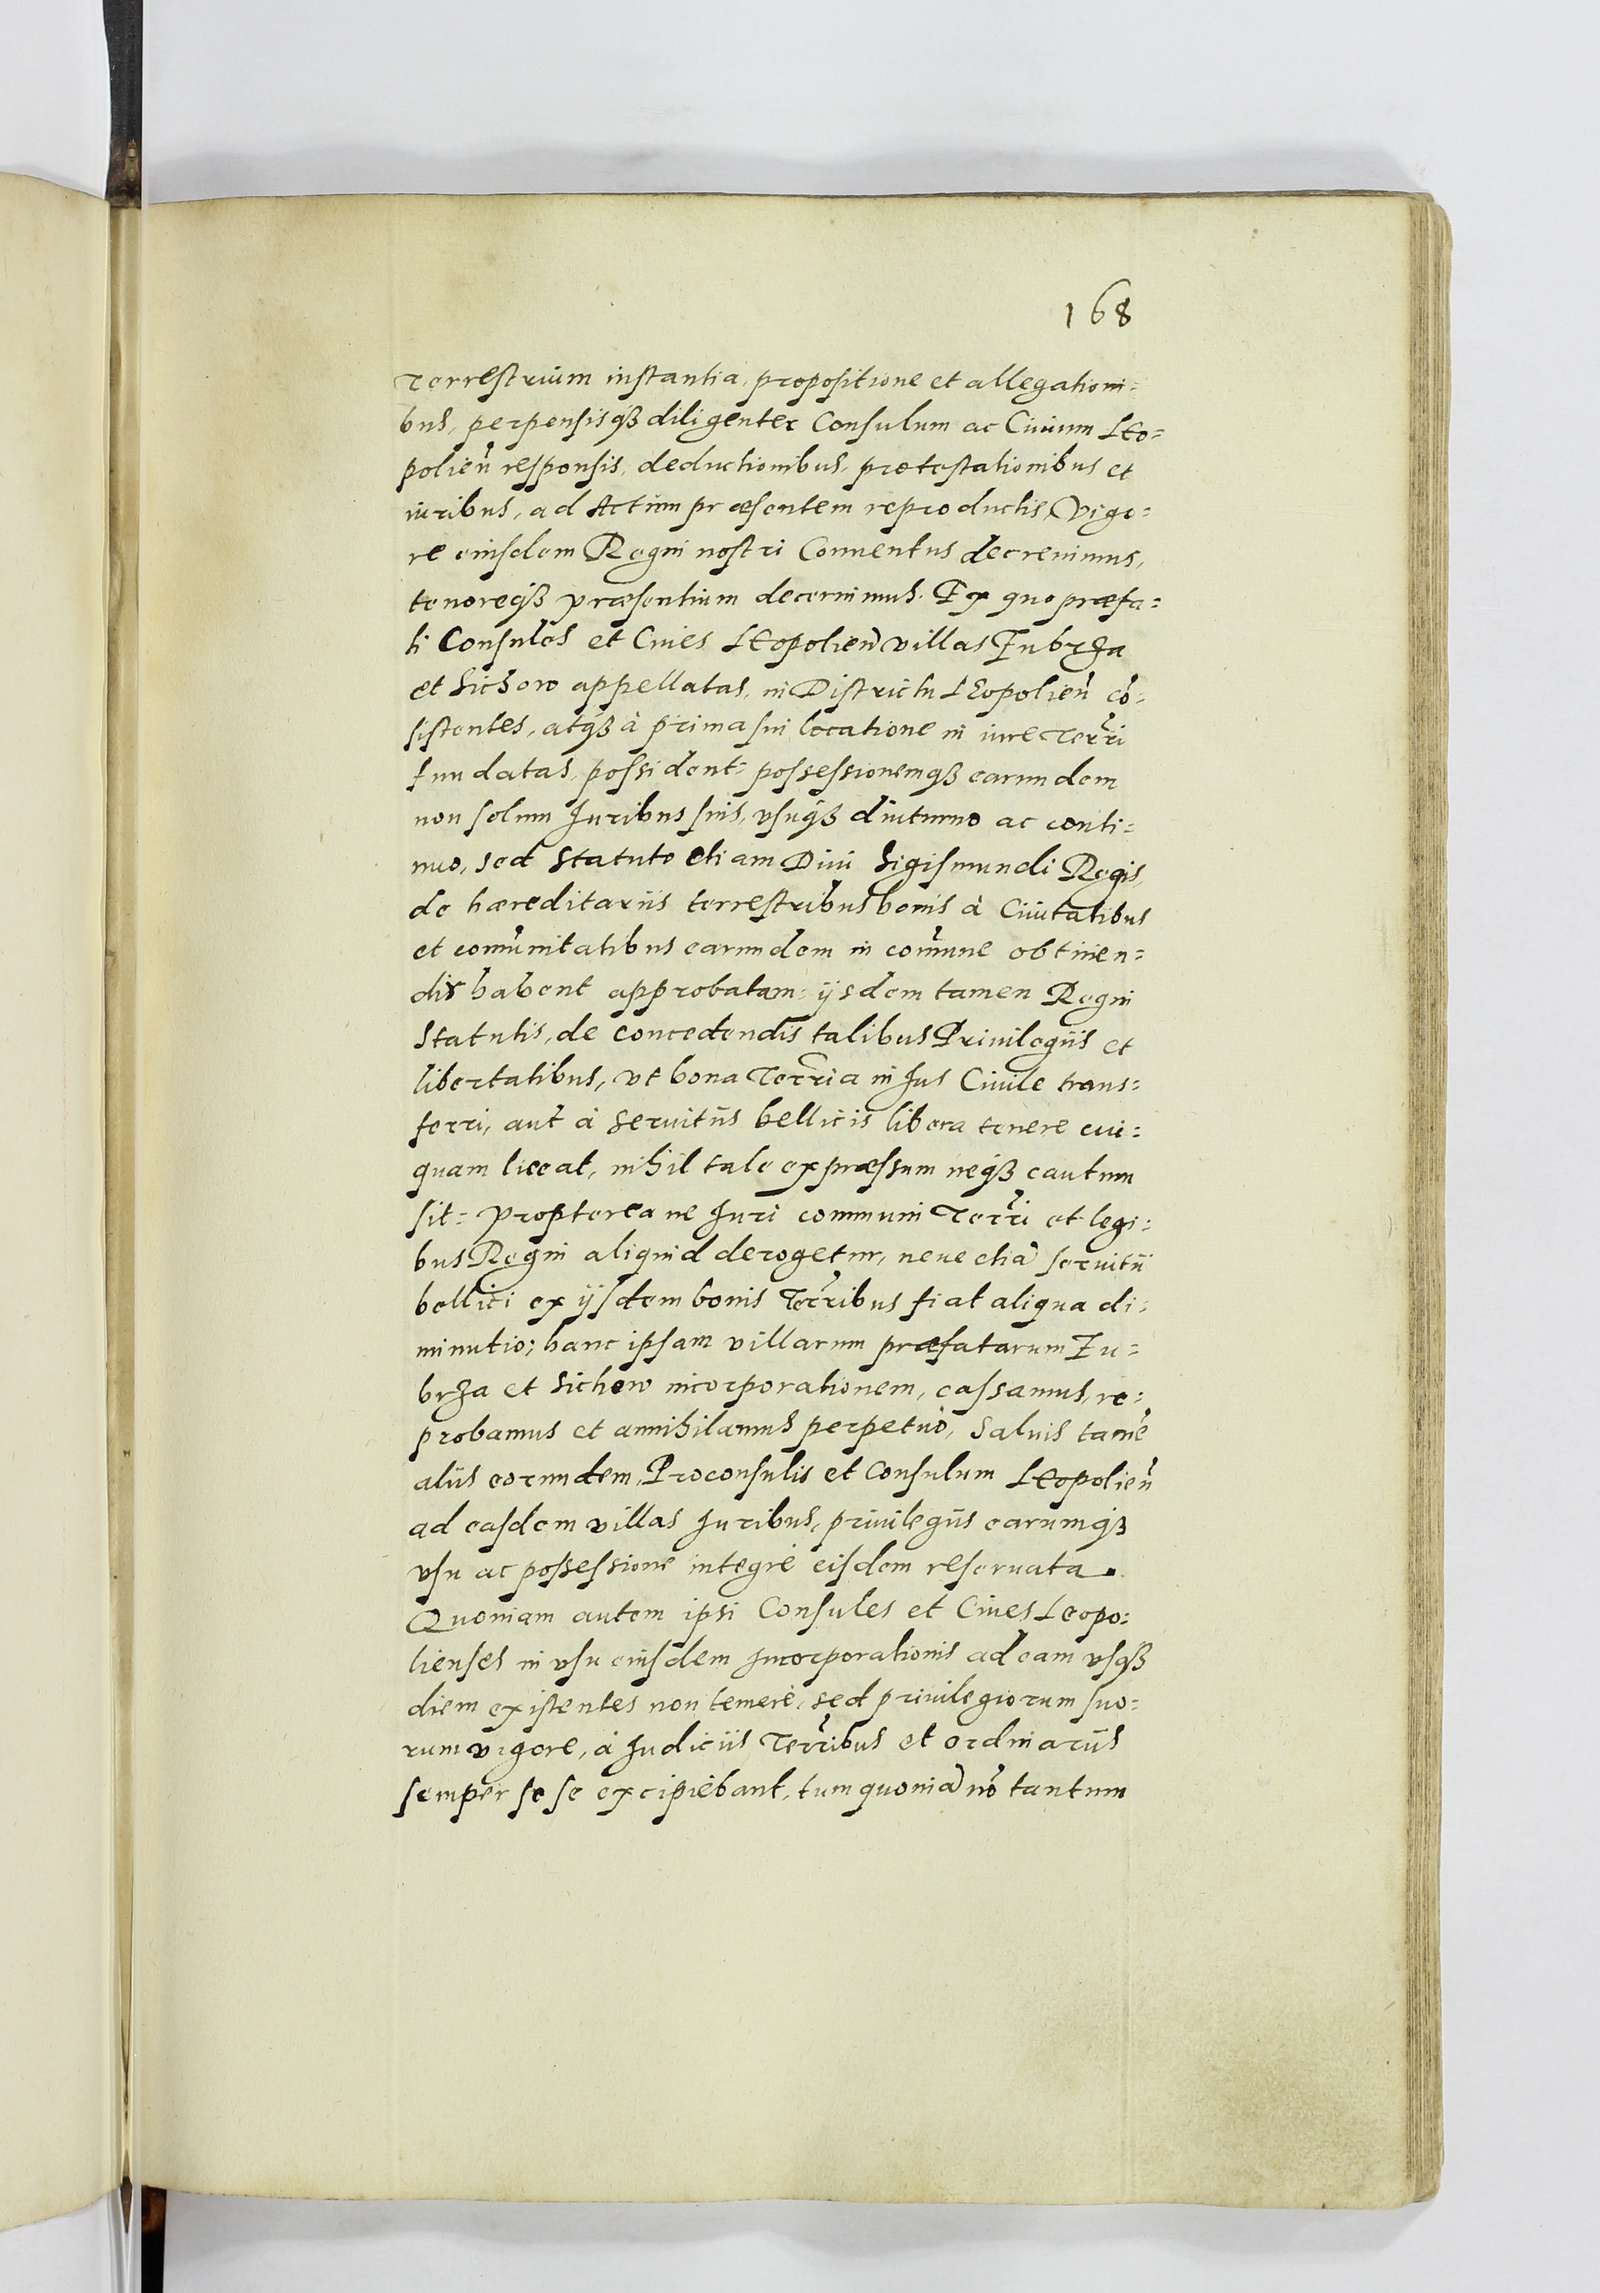 168
Terrestrium instantia, propositione et allegationi=
bus, perpensisqꝫ diligenter Consulum ac Ciuium Leo=
polien̄ responsis, deductionibus, protestationibus et
iuribus, ad Actum præsentem reproductis, Vigo=
re eiusdem Regni nostri Conuentus decreuimus,
tenoreqꝫ præsentium decernimus. Ex quo præfa=
ti Consules et Ciues Leopolien̄ villas Zubrza
et Sichow appellatas, in Districtu Leopolien̄ cō=
sistentes, atqꝫ à prima sui locatione in iure Terr̃i
fundatas, possident= possessionemqꝫ earundem
non solum Juribus suis, vsuqꝫ diuturno ac conti=
nuo, sed Statuto etiam Diui Sigismundi Regis,
de hæreditariis terrestribus bonis à Ciuitatibus
et com̄unitatibus earundem in com̄une obtinen=
dis habent approbatam= ijsdem tamen Regni
Statutis, de concedendis talibus Priuilegiis et
libertatibus, vt bona Terr̃ia in Jus Ciuile trans=
ferri, aut à seruitiis bellicis libera tenere cui=
quam liceat, nihil tale expræssum neqꝫ cautum
sit= Propterea ne Juri communi Terr̃i et legi=
bus Regni aliquid derogetur, neue etiā seruitii
bellici ex ijsdem bonis Terr̃ibus fiat aliqua di=
minutio; hanc ipsam villarum præfatarum Zu=
brza et Sichow incorporationem, cassamus, re=
probamus et annihilamus perpetuò, Saluis tamē
aliis eorundem, Proconsulis et Consulum Leopolien̄
ad easdem villas Juribus, priuilegiis earumqꝫ
vsu ac possessione integrè eisdem reseruata.
Quoniam autem ipsi Consules et Ciues Leopo=
lienses in vsu eiusdem Incorporationis ad eam vsqꝫ
diem existentes non temerè, sed priuilegiorum suo=
rum vigore, à Judiciis Terr̃ibus et ordinariis
semper se se excipiebant, tum quoniā nō tantum